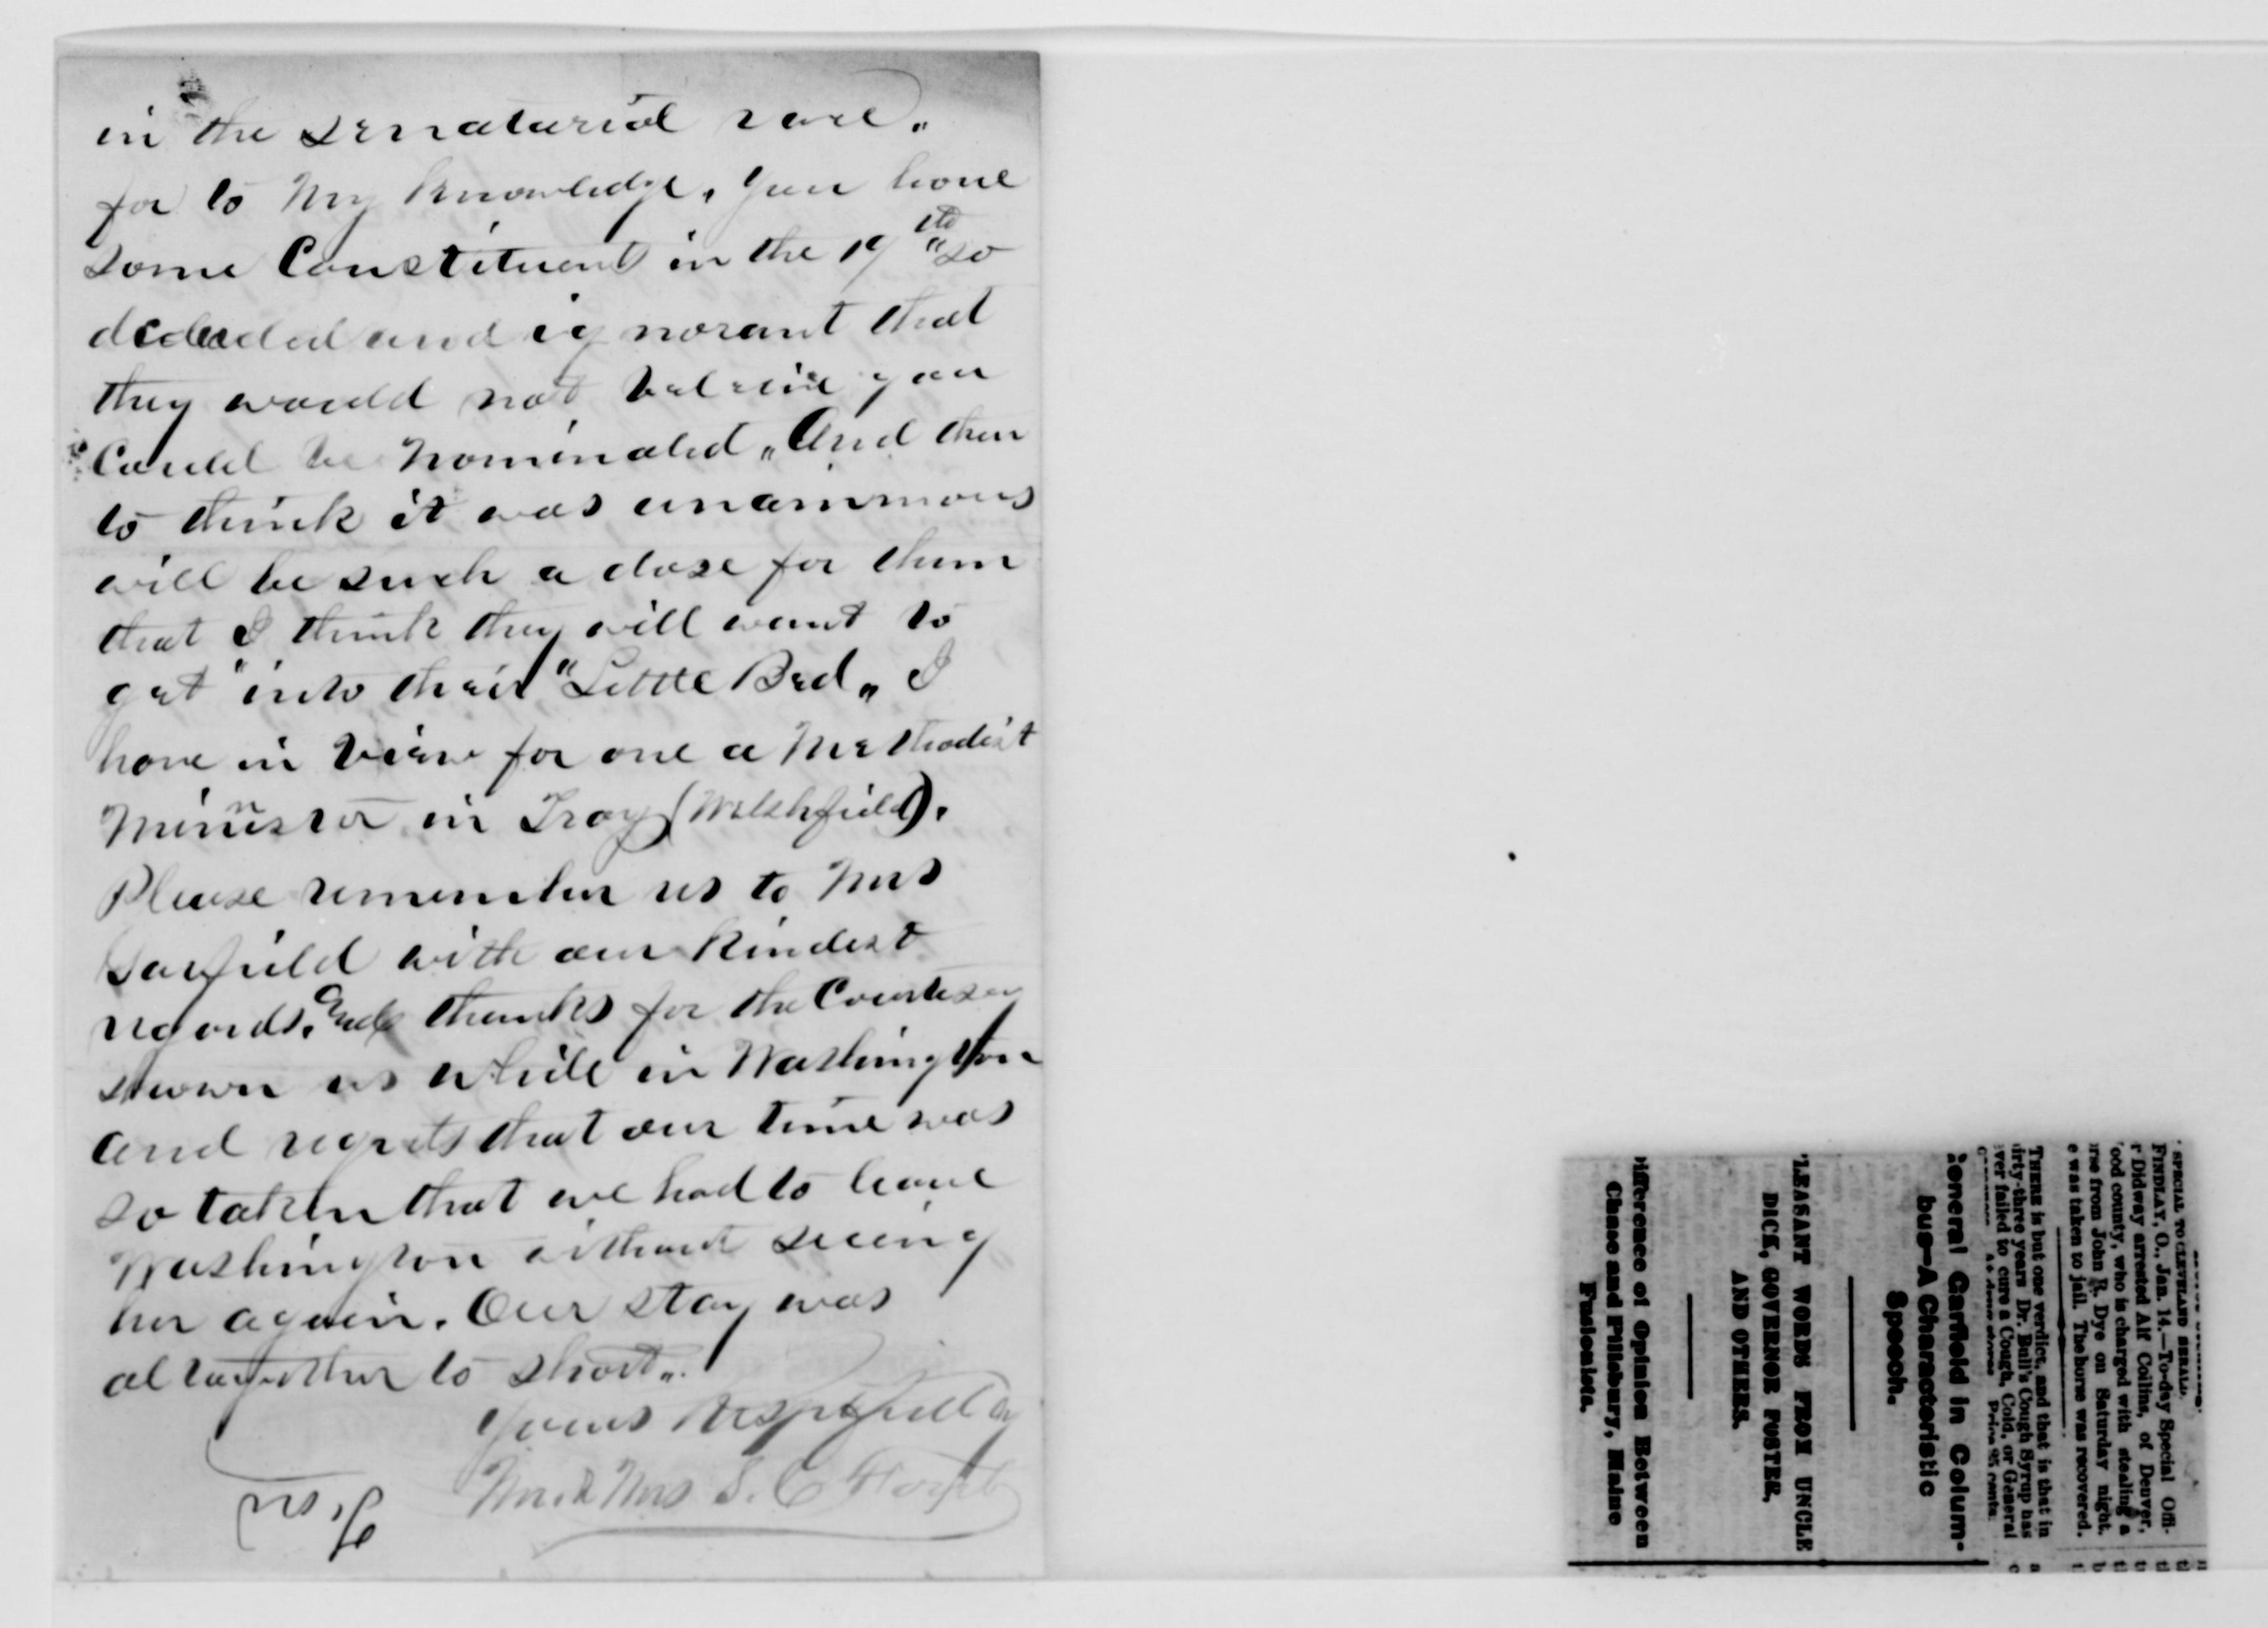 in the senatorial race.
for to my knowledge, you have
some Constituents in the 19th so
deluded and ignorant that
they would not beleive you
Could be nominated. And then
to think it was unanimous
will be such a dose for them
that I think they will want to
get "into their "Little Bed" I
have in view for one a Methodist
Minnister in Troy (Welshfield).
Please remember us to Mrs
Garfield with our kindest
regards. And thanks for the Courtesy
shown us while in Washington
and regrets that our time was
so taken that we had to leave
Washington without seeing
her again. Our stay was
altogether to short.
Yours Respectfully
Mr & Mrs S. C.
SPECIAL TO CLEVELAND HERALD.
FINDLAY, O., Jan. 14.—To-day Special Offi-
r Didway arrested Alf Collins, of Denver,
ood county, who is charged with stealing a
rse from John R. Dye on Saturday night.
e was taken to jail. The horse was recovered.
THERE is but one verdict, and that is that in
irty-three years Dr. Bull's Cough Syrup has
ver failed to cure a Cough, Cold, or General
Price 25 cents.
eneral Garfield in Colum-
bus—A Characteristic
Speech.
LEASANT WORDS FROM UNCLE
DICK, GOVERNOR FOSTER,
AND OTHERS.
ifference of Opinion Between
Chase and Pillsbury, Maine
Fusionists.